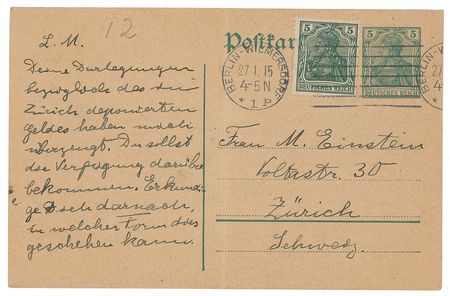 12
L. M.
Deine Darlegungen
bezüglich des in
Zürich deponierten
Geldes haben mich
überzeugt. Du sollst
die Verfügung darüber
bekommen. Erkundi-
ge Dich darnach,
in welcher Form dies
geschehen kann.
Postkar
5 5
DEUTSCHES REICH
5 5
DEUTSCHES REICH
BERLIN-WILMERSDORF
27.1.15
4-5N
* 1 P
BERLIN-W
27
4-
* 
Frau M. Einstein
Voltastr. 30
Zürich
Schweiz.